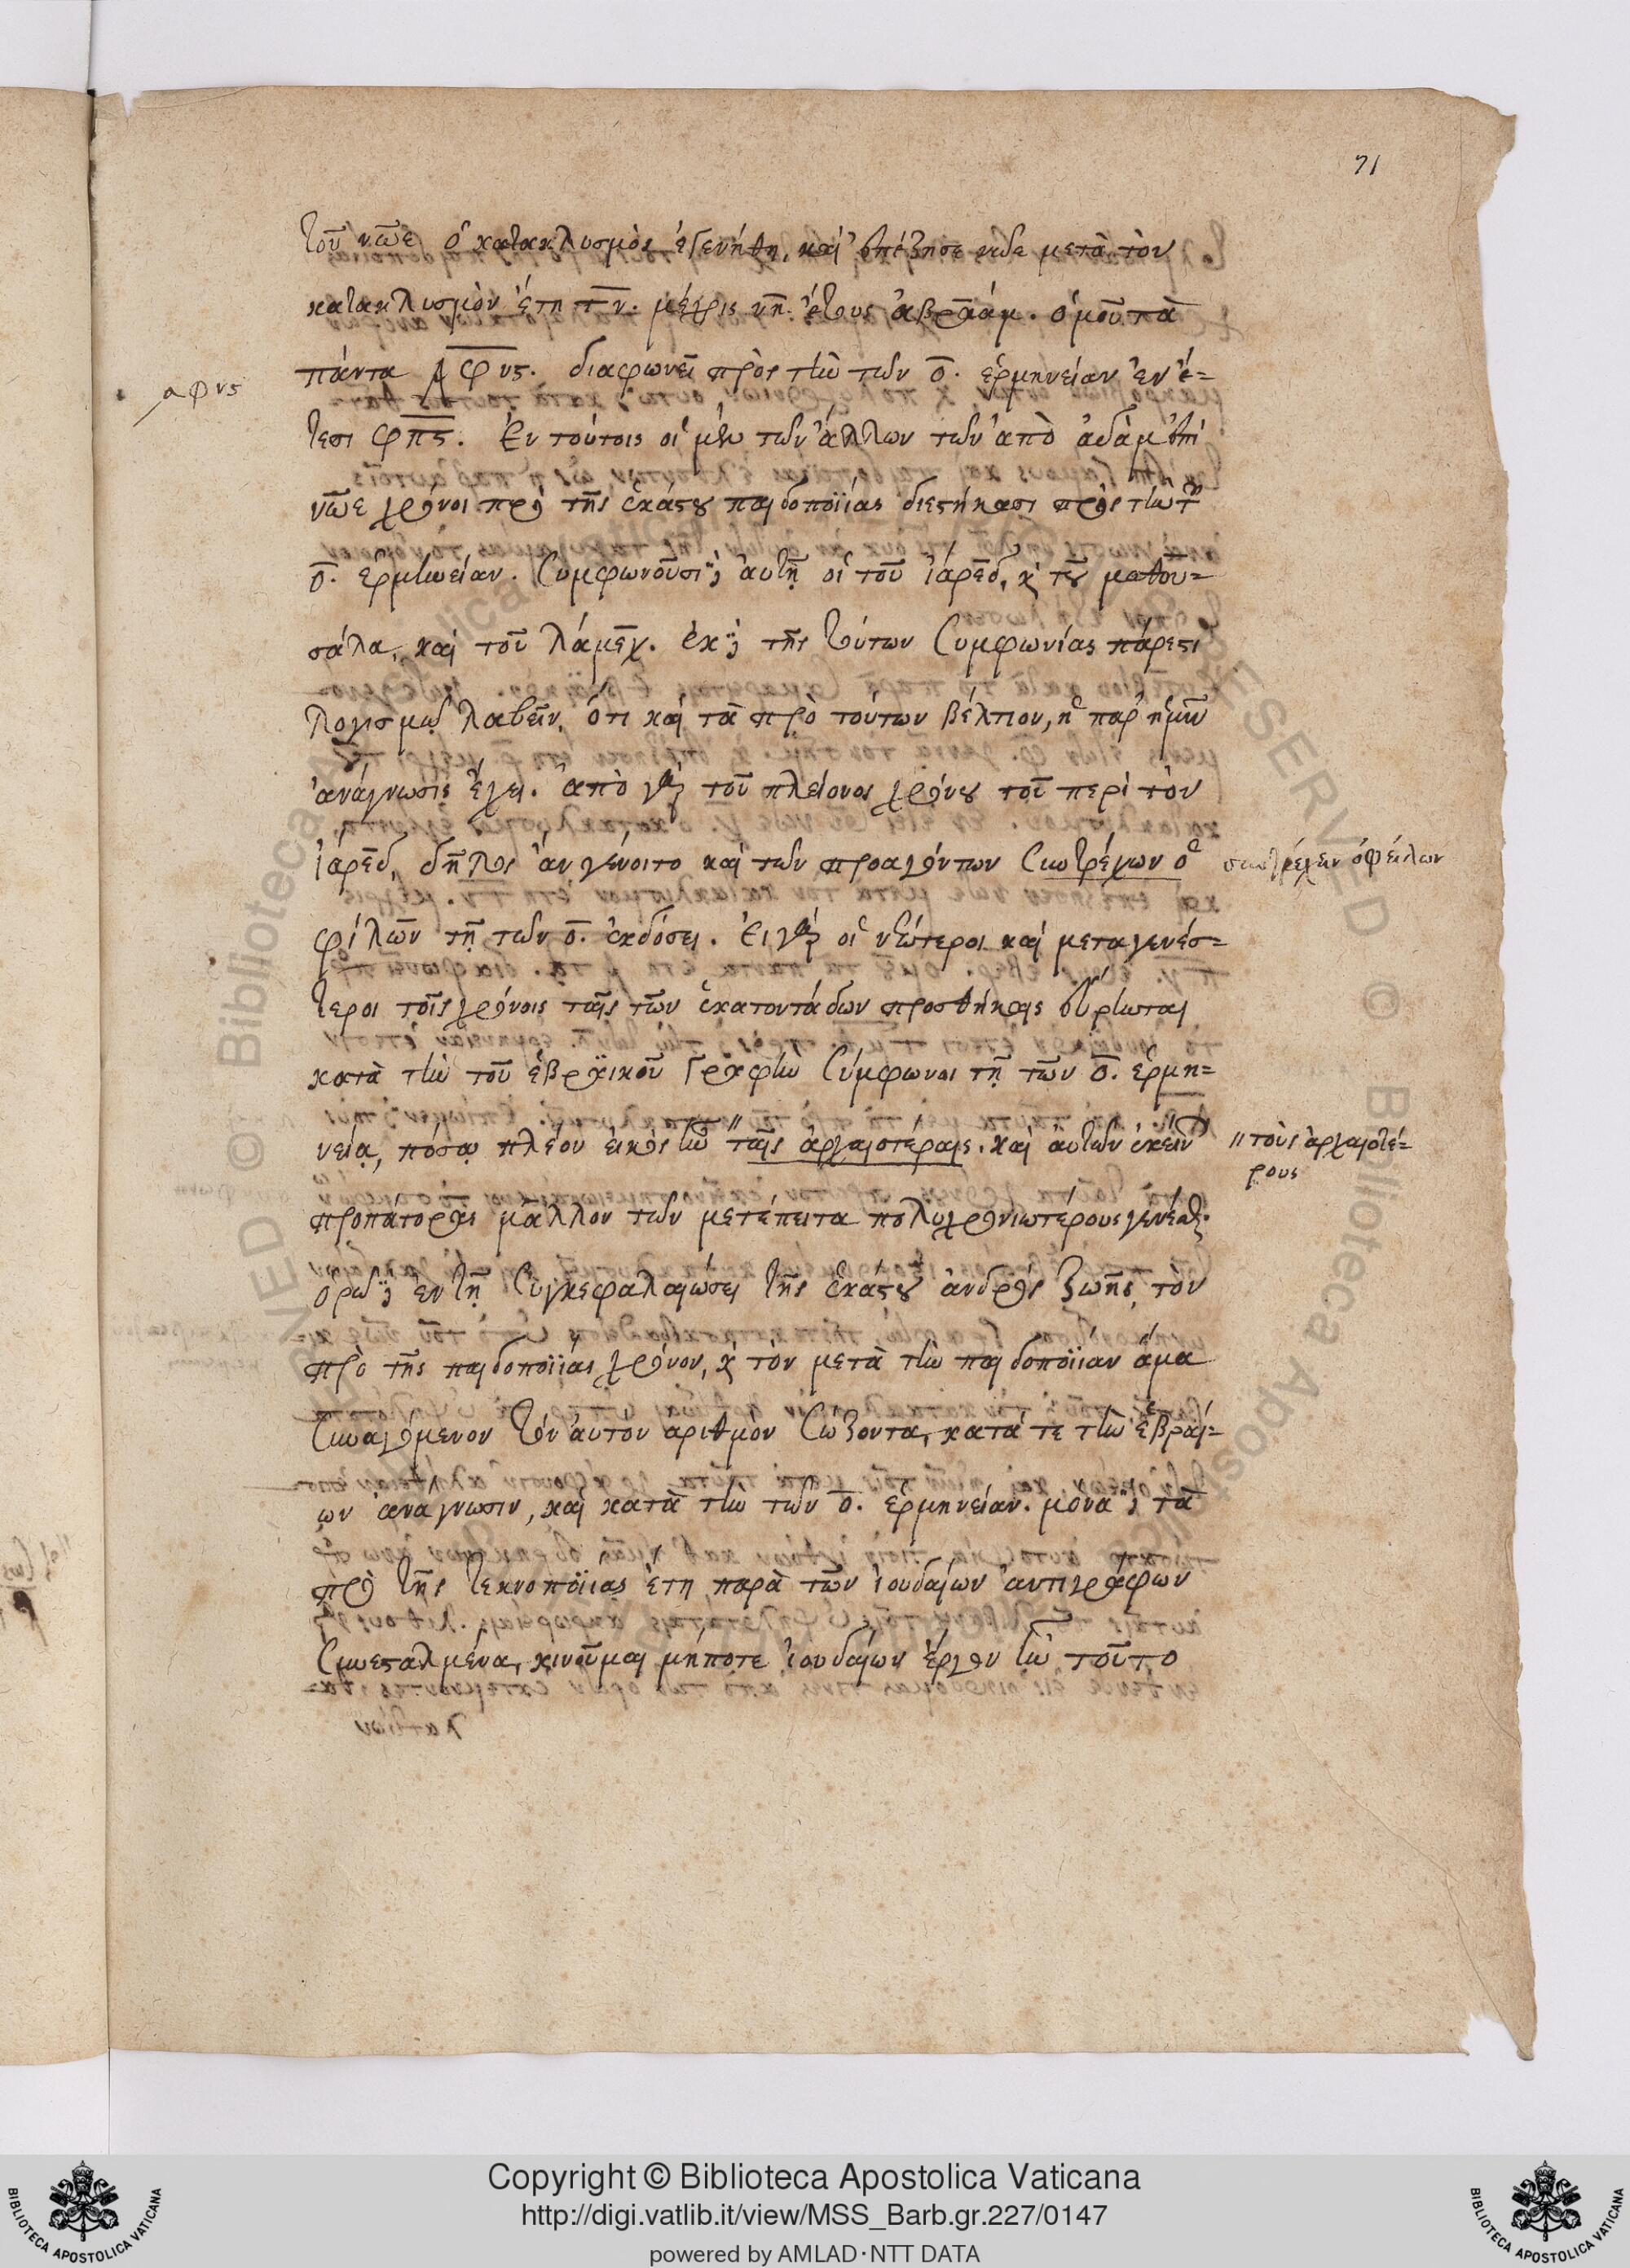 71
τοῦ νῶε ὁ κατακλυσμὸς ἐγενήθη, καὶ ἐπέζησε νῶε μετὰ τὸν
κατακλυσμὸν ἔτη τ̅ν̅. μέχρις νη. ἔτους ἀβραάμ. ὁμοῦ τὰ
πάντα ͵αφνϛ. διαφωνεῖ πρὸς τὴν τῶν ο̅. ἑρμηνείαν ἐν ἔ=
αφνϛ
τεσι φπϛ. Ἐν τούτοις οἱ μὲν τῶν ἄλλων τῶν ἀπὸ ἀδὰμ ἐπὶ
νῶε χρόνοι πρὸ τῆς ἑκάστου παιδοποιΐας διεστήκασι πρὸς τὴν τῶν
ο̅. ἑρμηνείαν. Συμφωνοῦσι δὲ αὐτῇ οἱ τοῦ ἰάρεδ, κ̀ τοῦ μαθου=
σάλα, καὶ τοῦ λάμεχ. ἐκ δὲ τῆς τούτων συμφωνίας πάρεστι
λογισμῷ λαβεῖν, ὅτι καὶ τὰ πρὸ τούτων βέλτιον, ἡ παρ' ἡμῖν
ἀνάγνωσις ἔχει. ἀπὸ γὰρ τοῦ πλείονος χρόνου τοῦ περὶ τὸν
ἰάρεδ, δῆλος ἂν γένοιτο καὶ τῶν προαγόντων συντρέχων ὀ
συντρέχειν ὀφείλων
φίλων τῇ τῶν ο̅. ἐκδόσει. Εἰ γὰρ οἱ νεώτεροι καὶ μεταγενέσ=
τεροι τοῖς χρόνοις ταῖς τῶν ἑκατοντάδων προσθήκαις εὕρηνται
κατὰ τὴν τοῦ ἑβραϊκοῦ γραφὴν σύμφωνοι τῇ τῶν ο̅. ἑρμη=
νείᾳ, πόσῳ πλέον εἰκὸς ἦν " ταῖς ἀρχαιοτέραις. καὶ αὐτῶν ἐκείνων
" τοὺς ἀρχαιοτέ=
ρους
προπάτορας μᾶλλον τῶν μετέπειτα πολυχρονιωτέρους γενέσθαι.
ὁρῶ δὲ ἐν τῇ συγκεφαλαιώσει τῆς ἑκάστου ἀνδρὸς ζωῆς, τὸν
πρὸ τῆς παιδοποιΐας χρόνον, κ̀ τὸν μετὰ τὴν παιδοποιΐαν ἅμα
συναγόμενον τὸν αὐτὸν ἀριθμὸν σώζοντα, κατά τε τὴν ἑβραί=
ων ἀνάγνωσιν, καὶ κατὰ τὴν τῶν ο̅. ἑρμηνείαν. μόνα δὲ τὰ
πρὸ τῆς τεκνοποιΐας ἔτη παρὰ τῶν ἰουδαίων ἀντιγράφων
συνεσταλμένα, κινοῦμαι μήποτε ἰουδαίων ἔργον ἦν τοῦτο
Copyright © Biblioteca Apostolica Vaticana
http://digi.vatlib.it/view/MSS_Barb.gr.227/0147
powered by AMLAD·NTT DATA
BIBLIOTECA APOSTOLICA VATICANA
BIBLIOTECA APOSTOLICA VATICANA